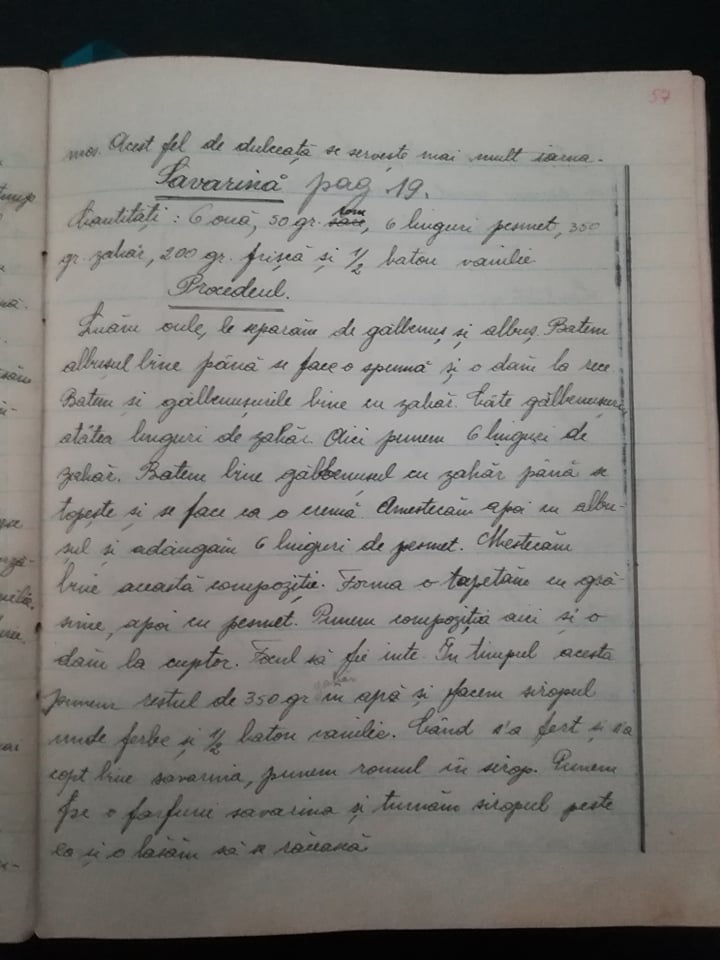 57
mos. Acest fel de dulceață se servește mai mult iarna.
Savarină pag 19.
Cantități: 6 ouă, 50 gr. rom, 6 linguri pesmet, 350
gr. zahăr, 200 gr. frișcă și 1/2 baton vanilie
Procedeul.
Luăm oule, le separăm de gălbenuș și albuș. Batem
albușul bine până se face o spumă și o dăm la rece.
Batem si gălbenușurile bine cu zahăr. Câte gălbenușuri
atâtea linguri de zahăr. Aici punem 6 linguri de
zahăr. Batem bine gălbenușul cu zahăr până se
topește și se face ca o cremă. Amestecăm apoi cu albu-
șul și adăugăm 6 linguri de pesmet. Mestecăm
bine această compoziție. Forma o tapetăm cu gră-
sime, apoi cu pesmet. Punem compoziția aici și o
dăm la cuptor. Focul să fie iute. În timpul acesta
punem restul de 350 gr zahăr în apă și facem siropul
unde ferbe și 1/2 baton vanilie. Când s'a fert și s'a
copt bine savarina, punem romul în sirop. Punem
pe o farfurie savarina și turnăm siropul peste
ea și o lăsăm să se răcească